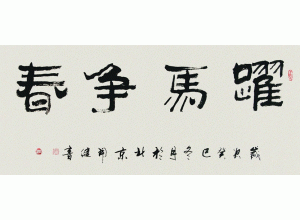 躍馬争春
歲次癸巳冬月於北京
書